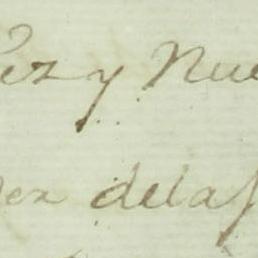 ez y Nue
ez dela